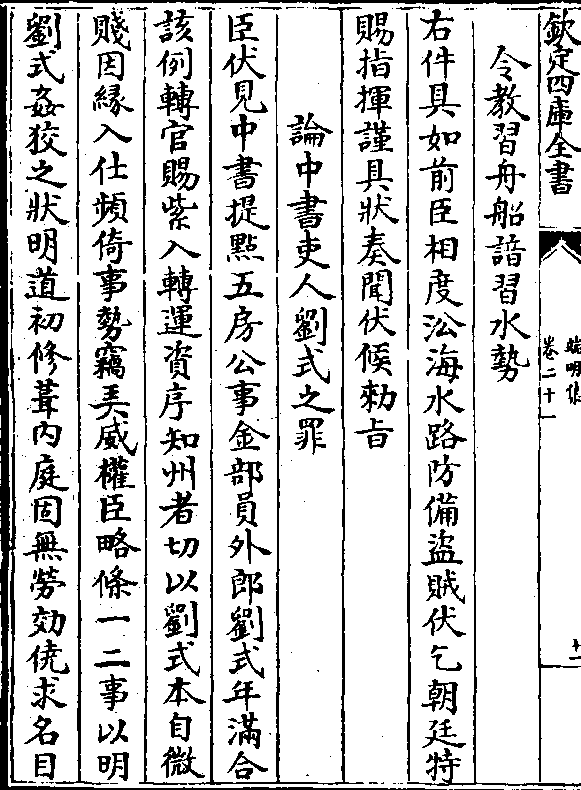 欽定四庫全書
端明集
卷二十一
十二
令教習舟船諳習水勢
右件具如前臣相度㳂海水路防備盜賊伏乞朝廷特
賜指揮謹具狀奏聞伏候勑旨
論中書吏人劉式之罪
臣伏見中書提點五房公事金部員外郎劉式年滿合
該例轉官賜紫入轉運資序知州者切以劉式本自微
賤因緣入仕頻倚事勢竊弄威權臣略條一二事以明
劉式姦狡之狀明道初修葺内庭固無勞効僥求名目